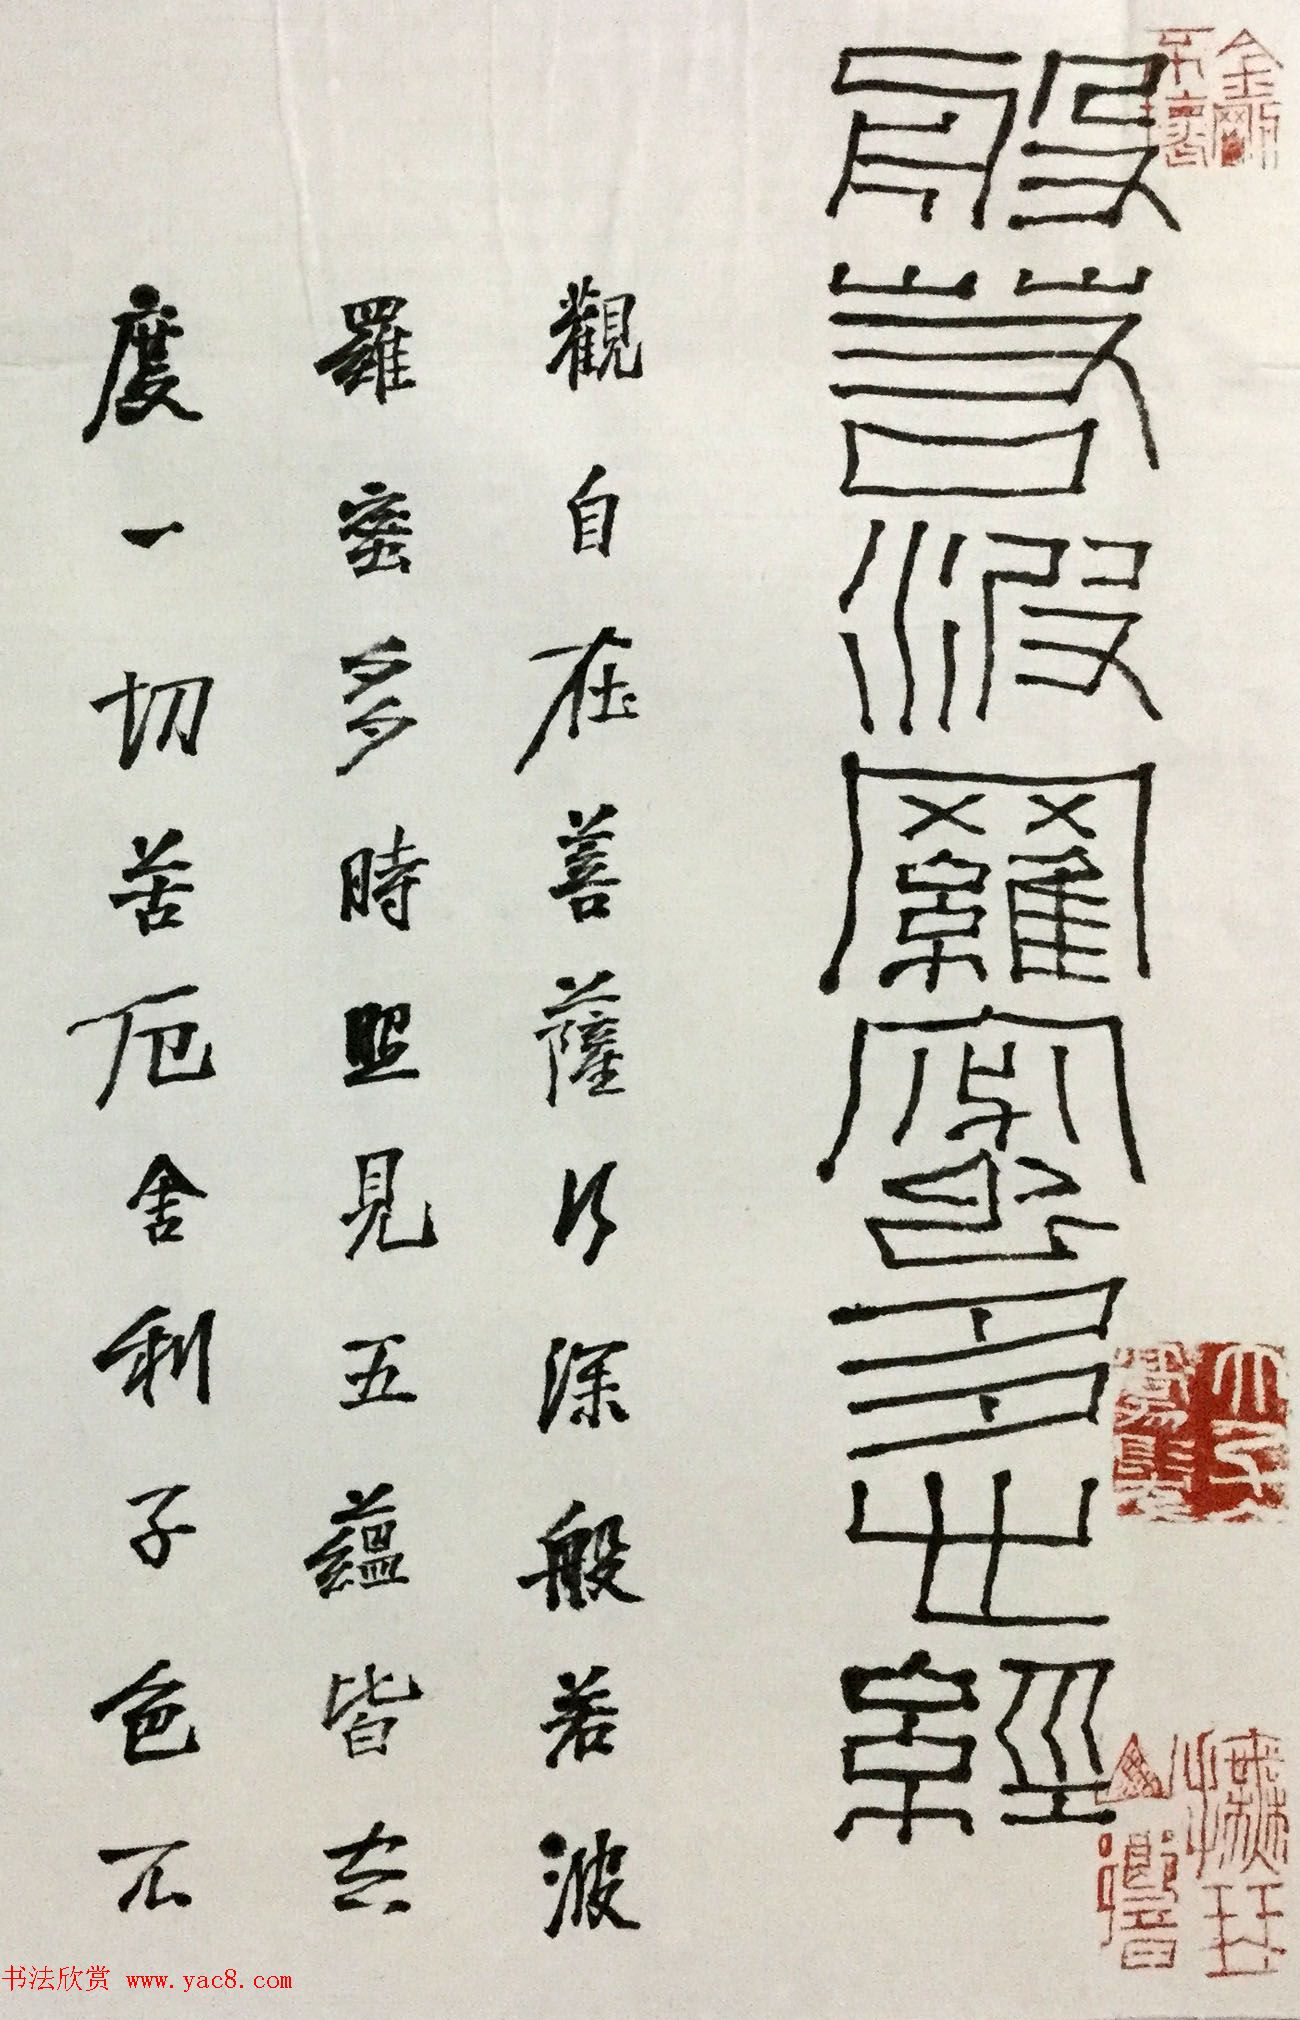 般若波羅蜜多心經
觀自在菩薩行深般若波
羅蜜多時照見五蘊皆空
度一切苦厄舍利子色不
金剛不壞
书法欣赏 www.yac8.com